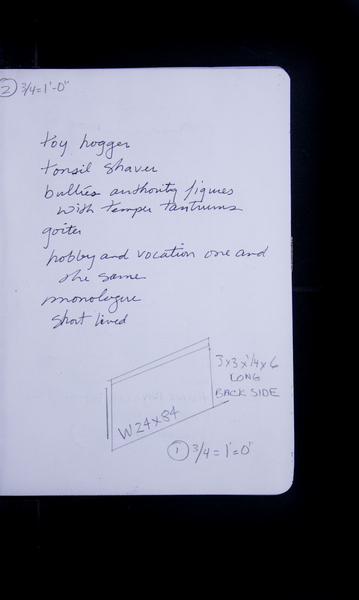 ② 3/4=1'-0"
toy hogger
tonsil shaver
bullies authority figures
with temper tantrums
goiter
hobby and vocation one and
the same
monologue
short lived
3x3x1/4x6
LONG
BACK SIDE
W24x84
① 3/4=1'=0"